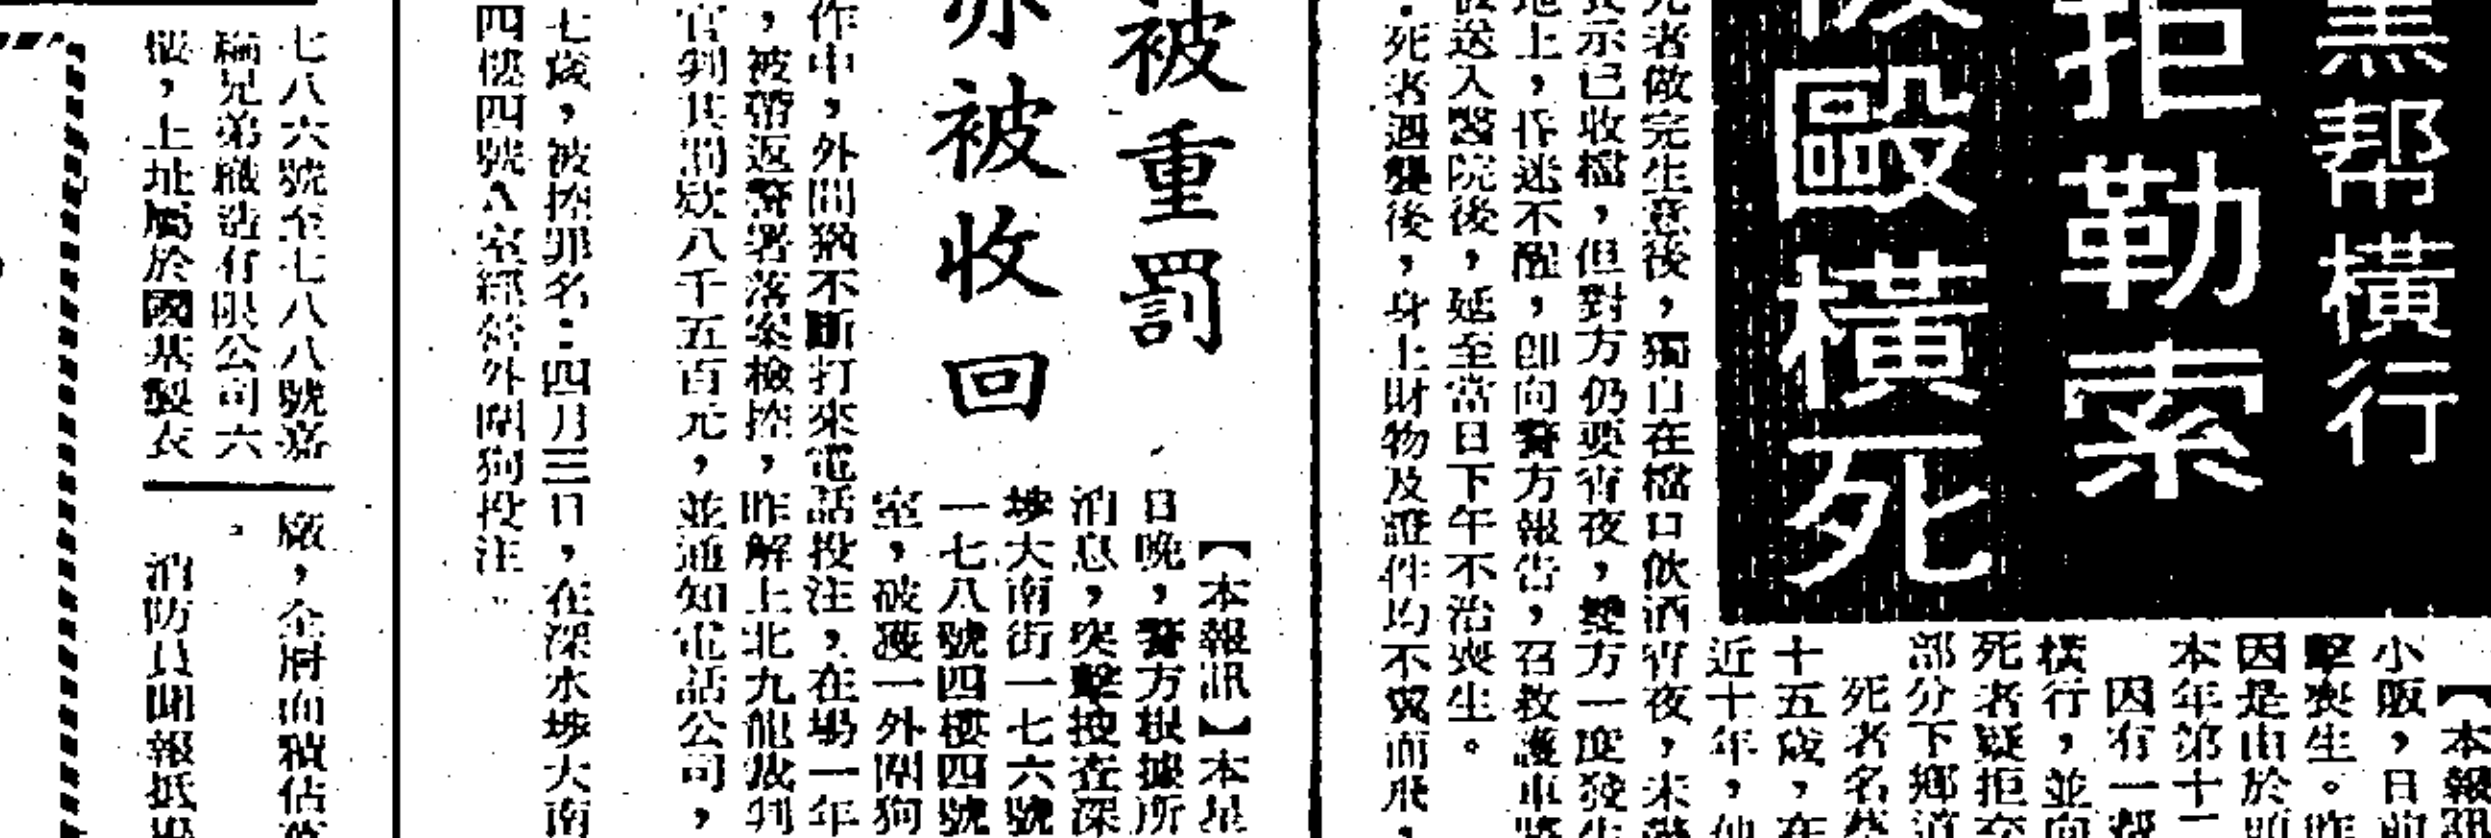 黑帮橫行
拒勒索
毆橫死
【本報訊
小販，日前
擊喪生。昨
因是由於
本年第十二
因有一幫
橫行，並向
死者疑拒交
部分下鄉道
死者名
十五歲，在
近十年，他
死者做完生意後，獨自在檔口飲酒宵夜，未幾
表示已收檔，但對方仍要宵夜，雙方一度發生
地上，昏迷不醒，即向警方報告，召救護車將
被送入醫院後，延至當日下午不治喪生。
，死者遇襲後，身上財物及證件均不翼而飛，
被重罰
亦被收回
【本報訊】本星
日晚，警方根據所
消息，突擊搜查深
埗大南街一七六號
一七八號四樓四號
室，破獲一外圍狗
作中，外間猶不斷打來電話投注，在場一年
，被帶返警署落案檢控，昨解上北九龍裁判
官判其罰欵八千五百元，並通知電話公司，
七歲，被控罪名：四月三日，在深水埗大南
四樓四號A室經營外圍狗投注。
七八六號至七八八號嘉
綸兄弟織造有限公司六
樓，上址屬於國基製衣
廠，全層面積佔
。
消防員聞報抵